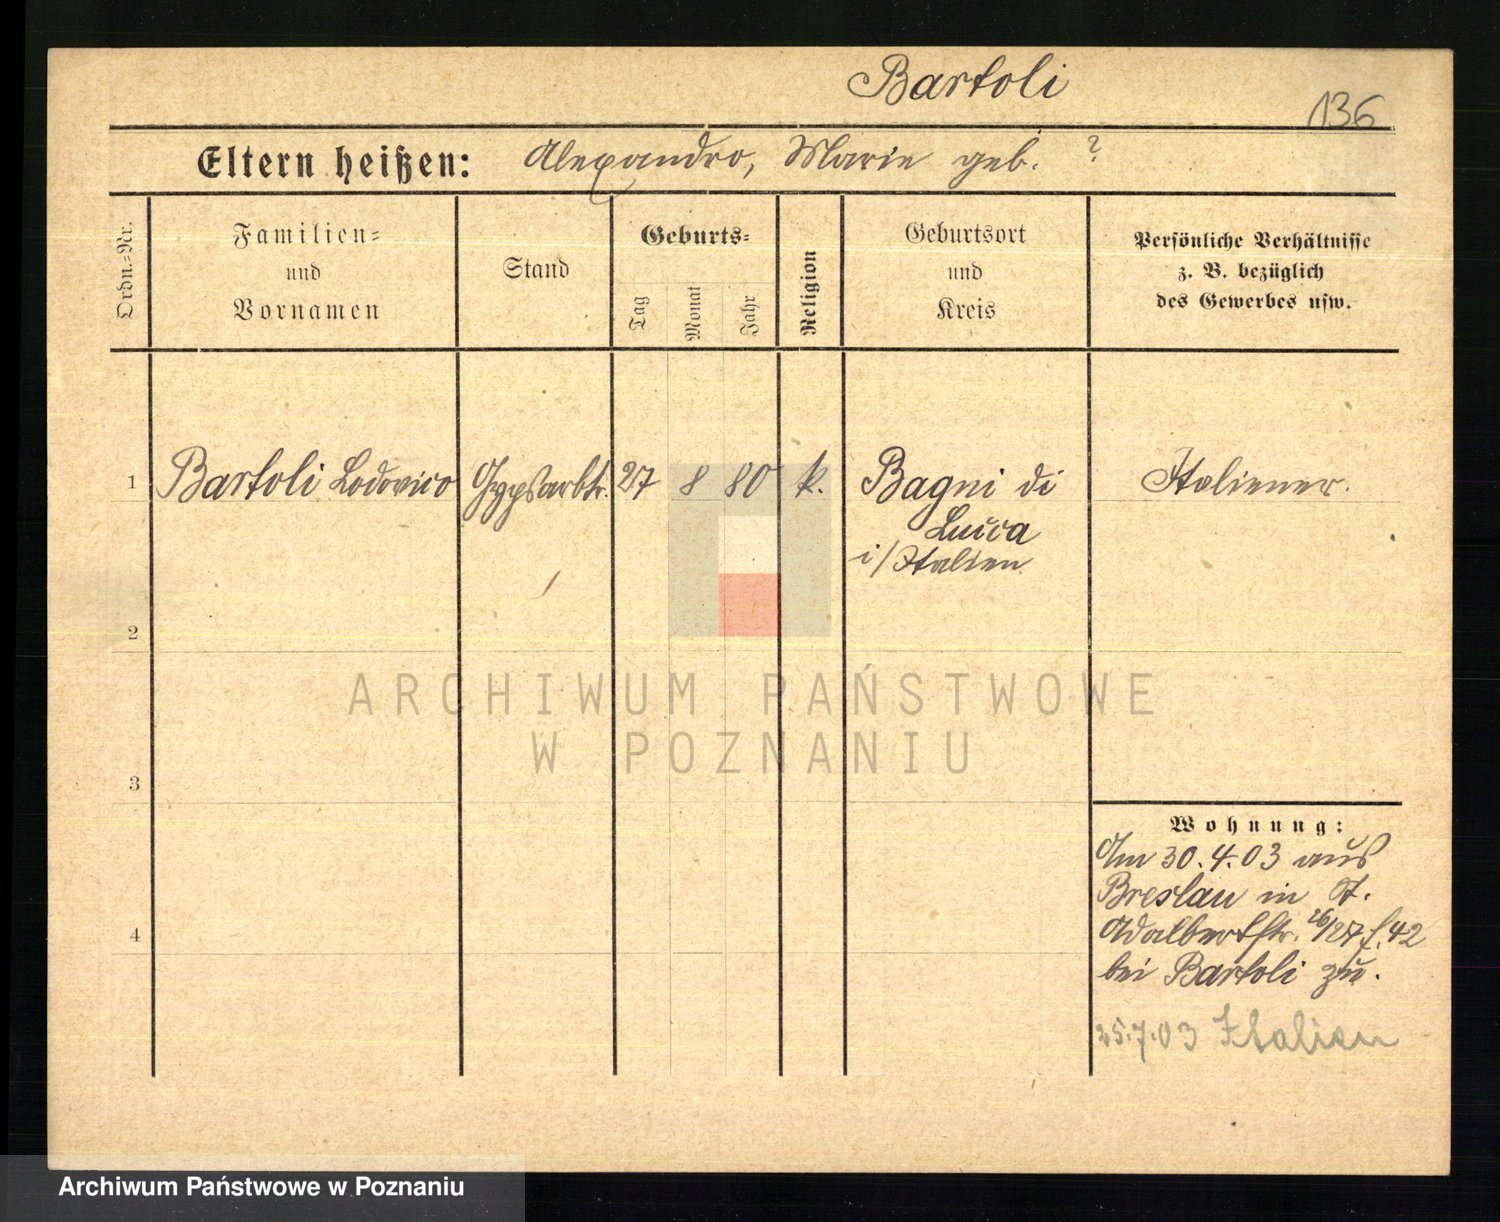 Bartoli
136
Eltern heißen: Alexandro, Marie geb. ?
Ordn.=Nr.
Familien=
und
Vornamen
Stand
Geburts=
Tag
Monat
Jahr
Religion
Geburtsort
und
Kreis
Persönliche Verhältnisse
z. B. bezüglich
des Gewerbes usw.
1 Bartoli Lodovico Gypsarbtr. 27 8 80 k. Bagni di Italiener.
Lucca
i/Italien
2
3
4
Wohnung:
Am 30.4.03 aus
Breslau in St.
Adalbertstr. 26/27 f. 42
bei Bartoli zu.
25.7.03 Italien
ARCHIWUM PAŃSTWOWE
W POZNANIU
Archiwum Państwowe w Poznaniu